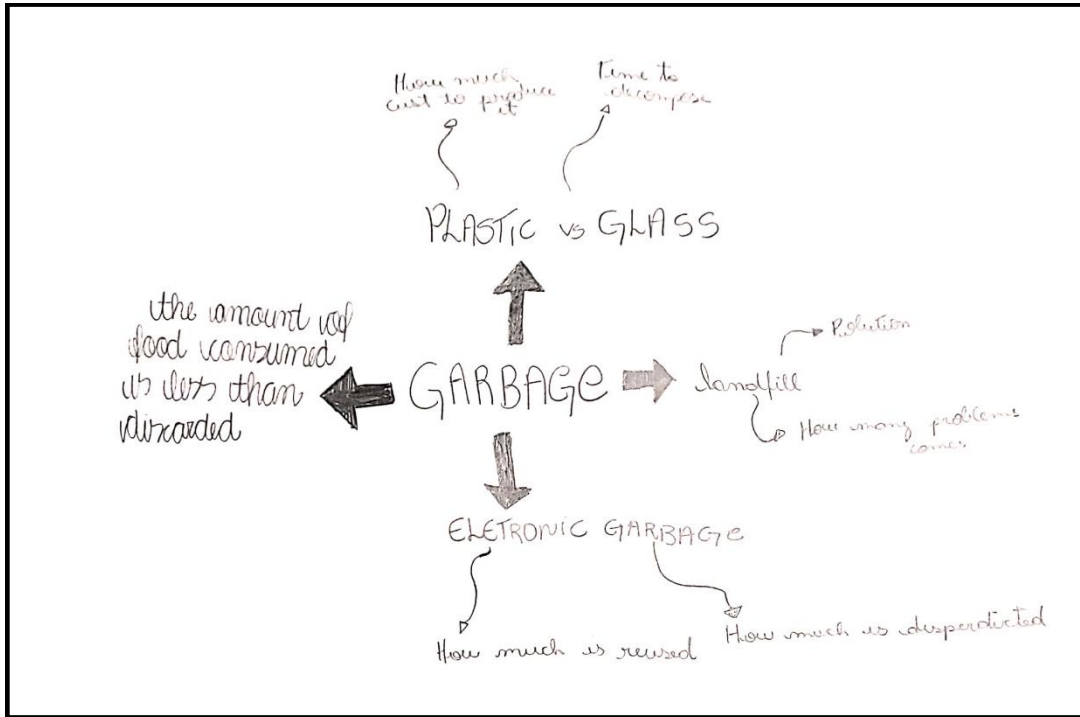 How much
cust to produce
it
Time to
decompose
PLASTIC vs GLASS
the amount of
food consumed
is less than
discarded
GARBAGE
landfill
Polution
How many problems
comes
ELETRONIC GARBAGE
How much is reused
How much is disperdicted